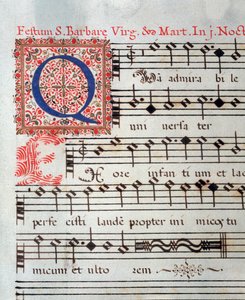 Festum S. Barbare Virg. & Mart. In j. Noct
Q
uā admira bi le
uni uersa ter
E
x ore infan tium et lac
perfe cisti laudē propter ini micos tu
micum et ulto rem.